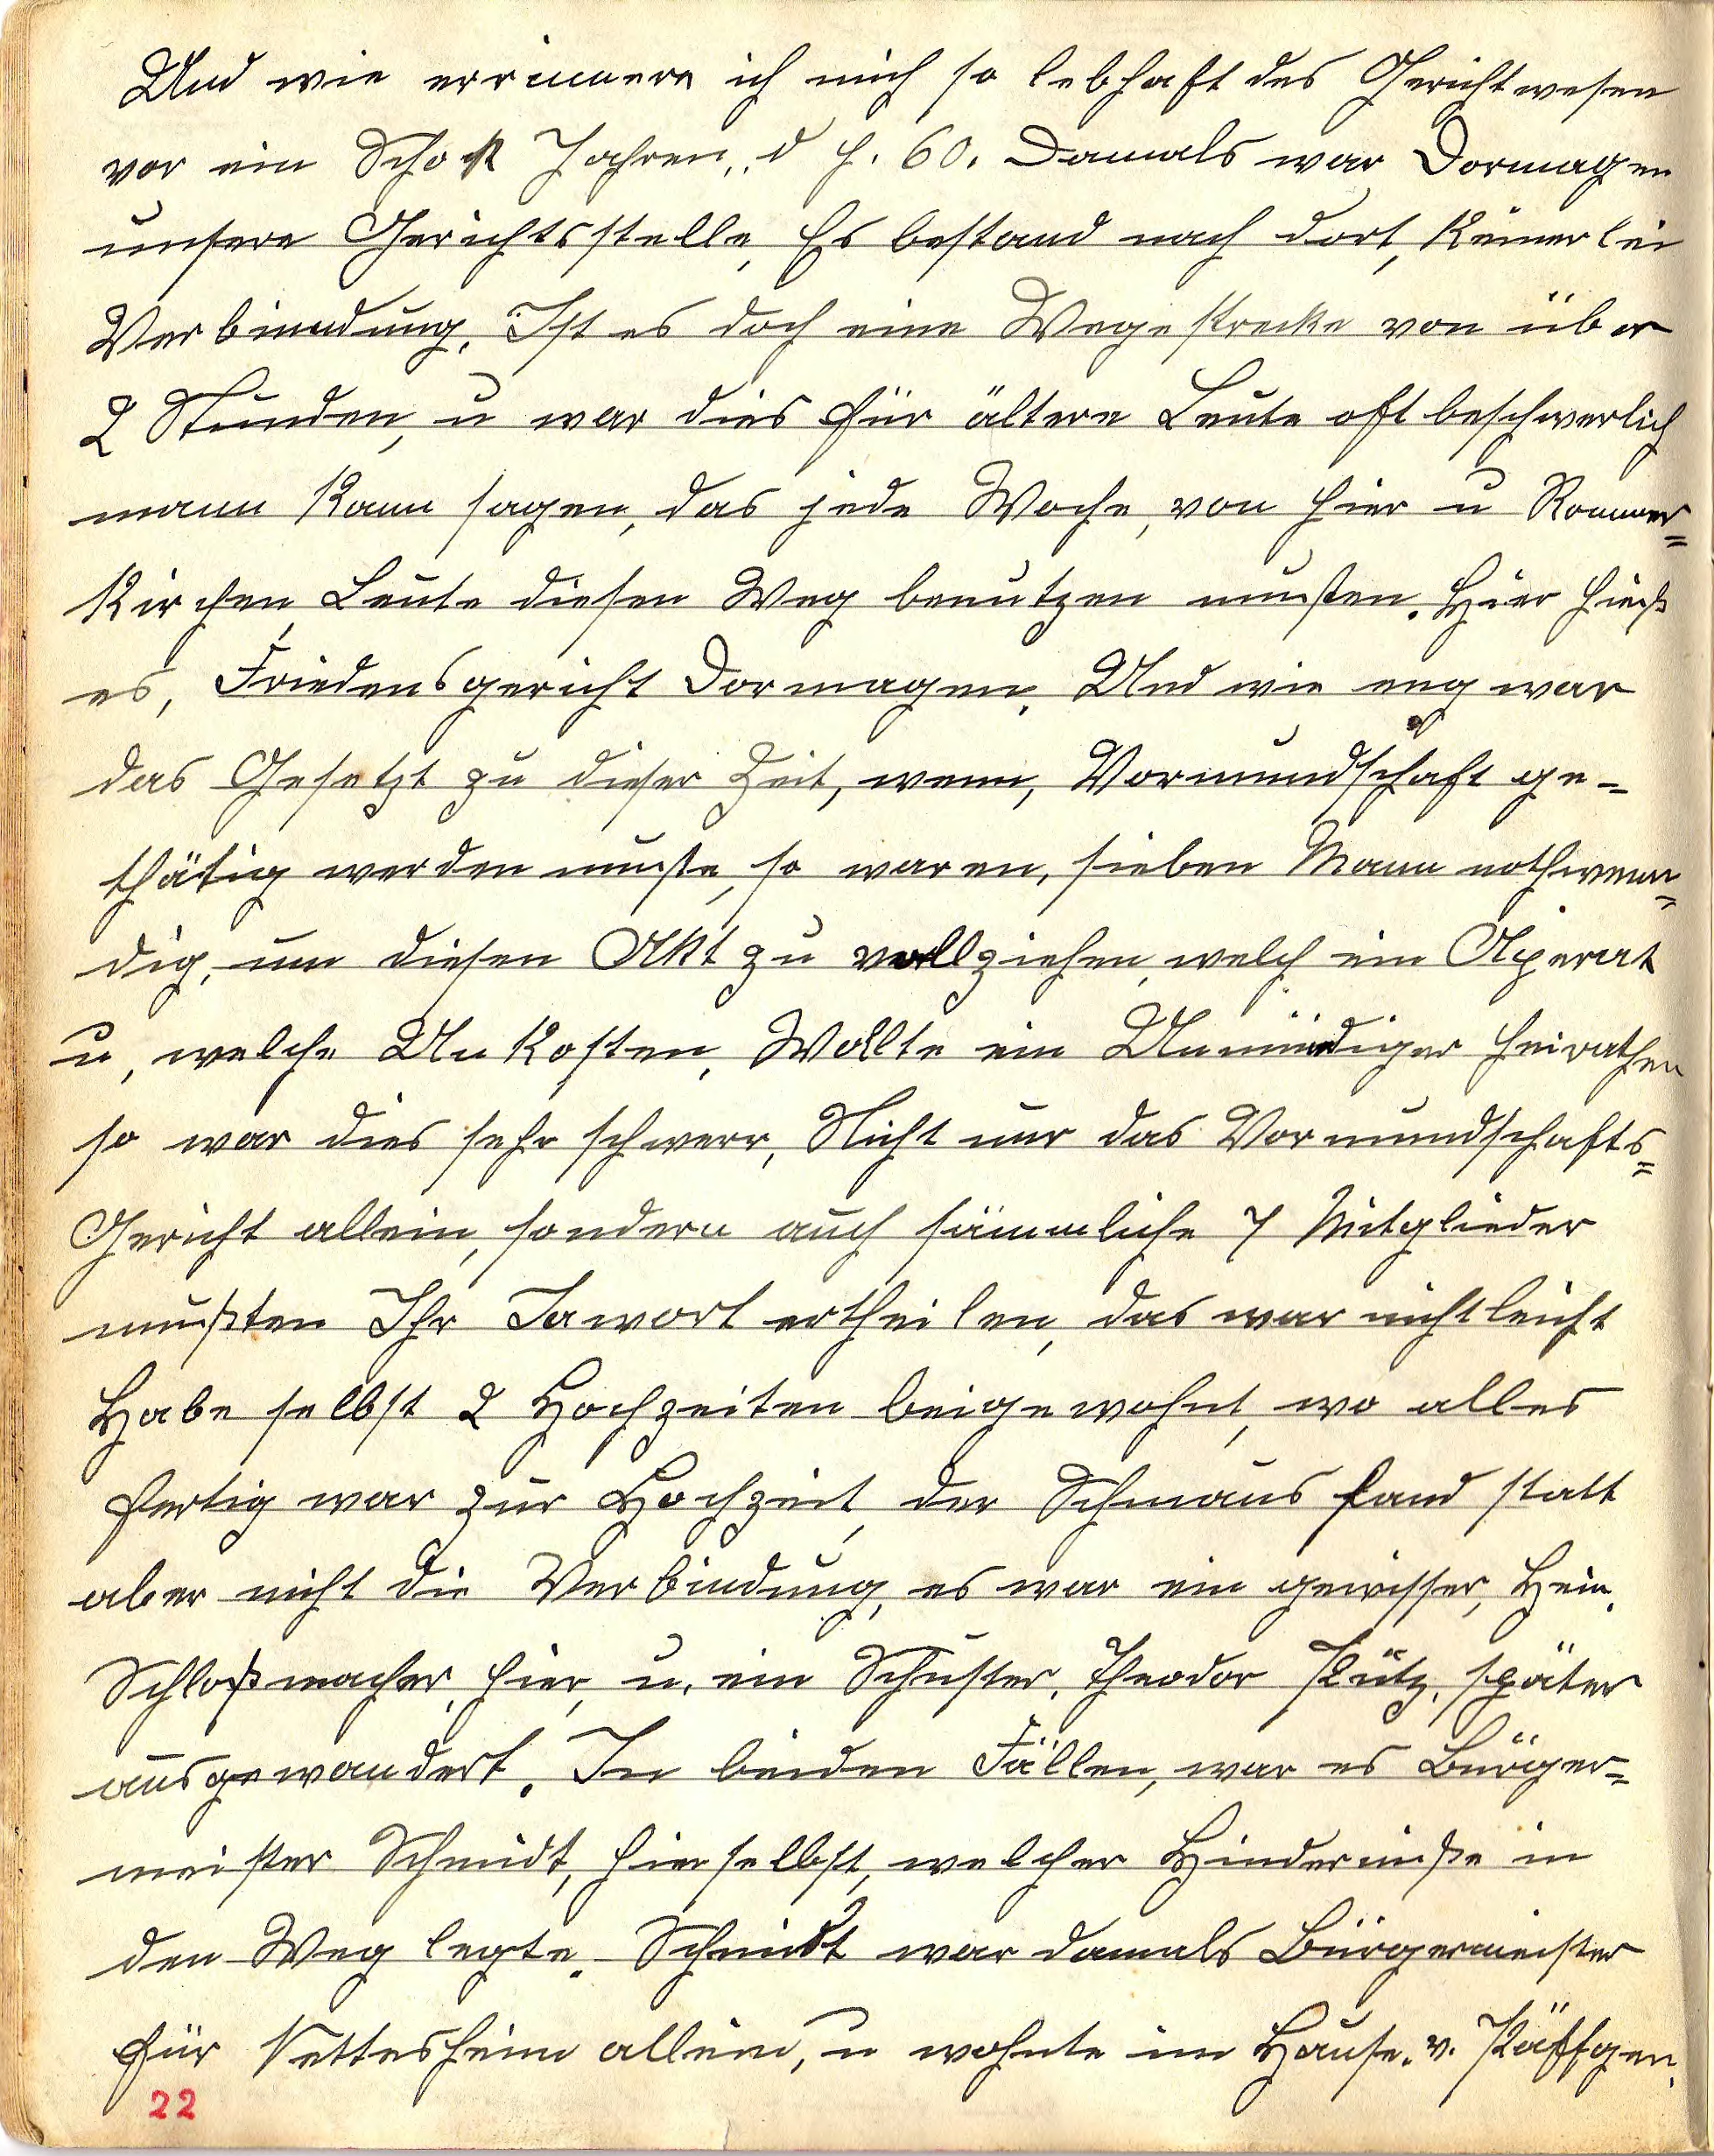 Und wie errinnere ich mich so lebhaft des Gerichtwesen
vor ein Schok Jahren, d h. 60. Damals war Dormagen
unsere Gerichtsstelle, Es bestand nach dort, keinerlei
Verbinndung, Ist es doch eine Wegestrecke von über
2 Stunden, u war dies für ältere Leute oft beschwerlich
mann kann sagen, das jede Woche, von hier u Rommer=
kirchen, Leute diesen Weg benutzen mußten. Hier hieß
es, Friedensgericht Dormagen, Und wie eng war
das Gesetzt zu dieser Zeit, wenn, Vormundschaft ge-
thätig werden mußte, so waren, sieben Mann nothwenn=
dig, um diesen Akt zu vollziehen, welch ein Aperat
u, welche Unkosten, Wollte ein Unmündiger heirathen
so war dies sehr schwerr, Nicht nur das Vormundschafts=
Gericht allein, sondern auch sämmliche 7 Mitglieder
mußten Ihr Jawort ertheilen, das war nicht leicht
Habe selbst 2 Hochzeiten beigewohnt, wo alles
fertig war zur Hochzeit, der Schmaus fand statt
aber nicht die Verbindung, es war ein gewisser, Hein.
Schloßmacher, hier, u. ein Schuster, Theodor Pütz, später
ausgewandert. In beiden Fällen, war es Bürger=
meister Schmidt, hierselbst, welcher Hinderniße in
den Weg legte. Schmidt war damals Bürgermeister
für Nettesheim allein, u wohnte im Hause. v. Päffgen.
22